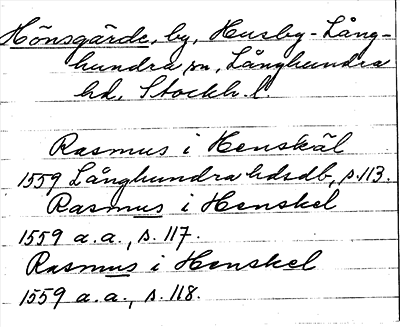 Hönsgärde, by, Husby-Lång-
hundra sn, Långhundra
hd, Stockh. l.
Rasmus i Henskäl
1559 Långhundra hdsdb, s. 113.
Rasmus i Henskel
1559 a.a., s. 117.
Rasmus i Henskel
1559 a.a., s. 118.